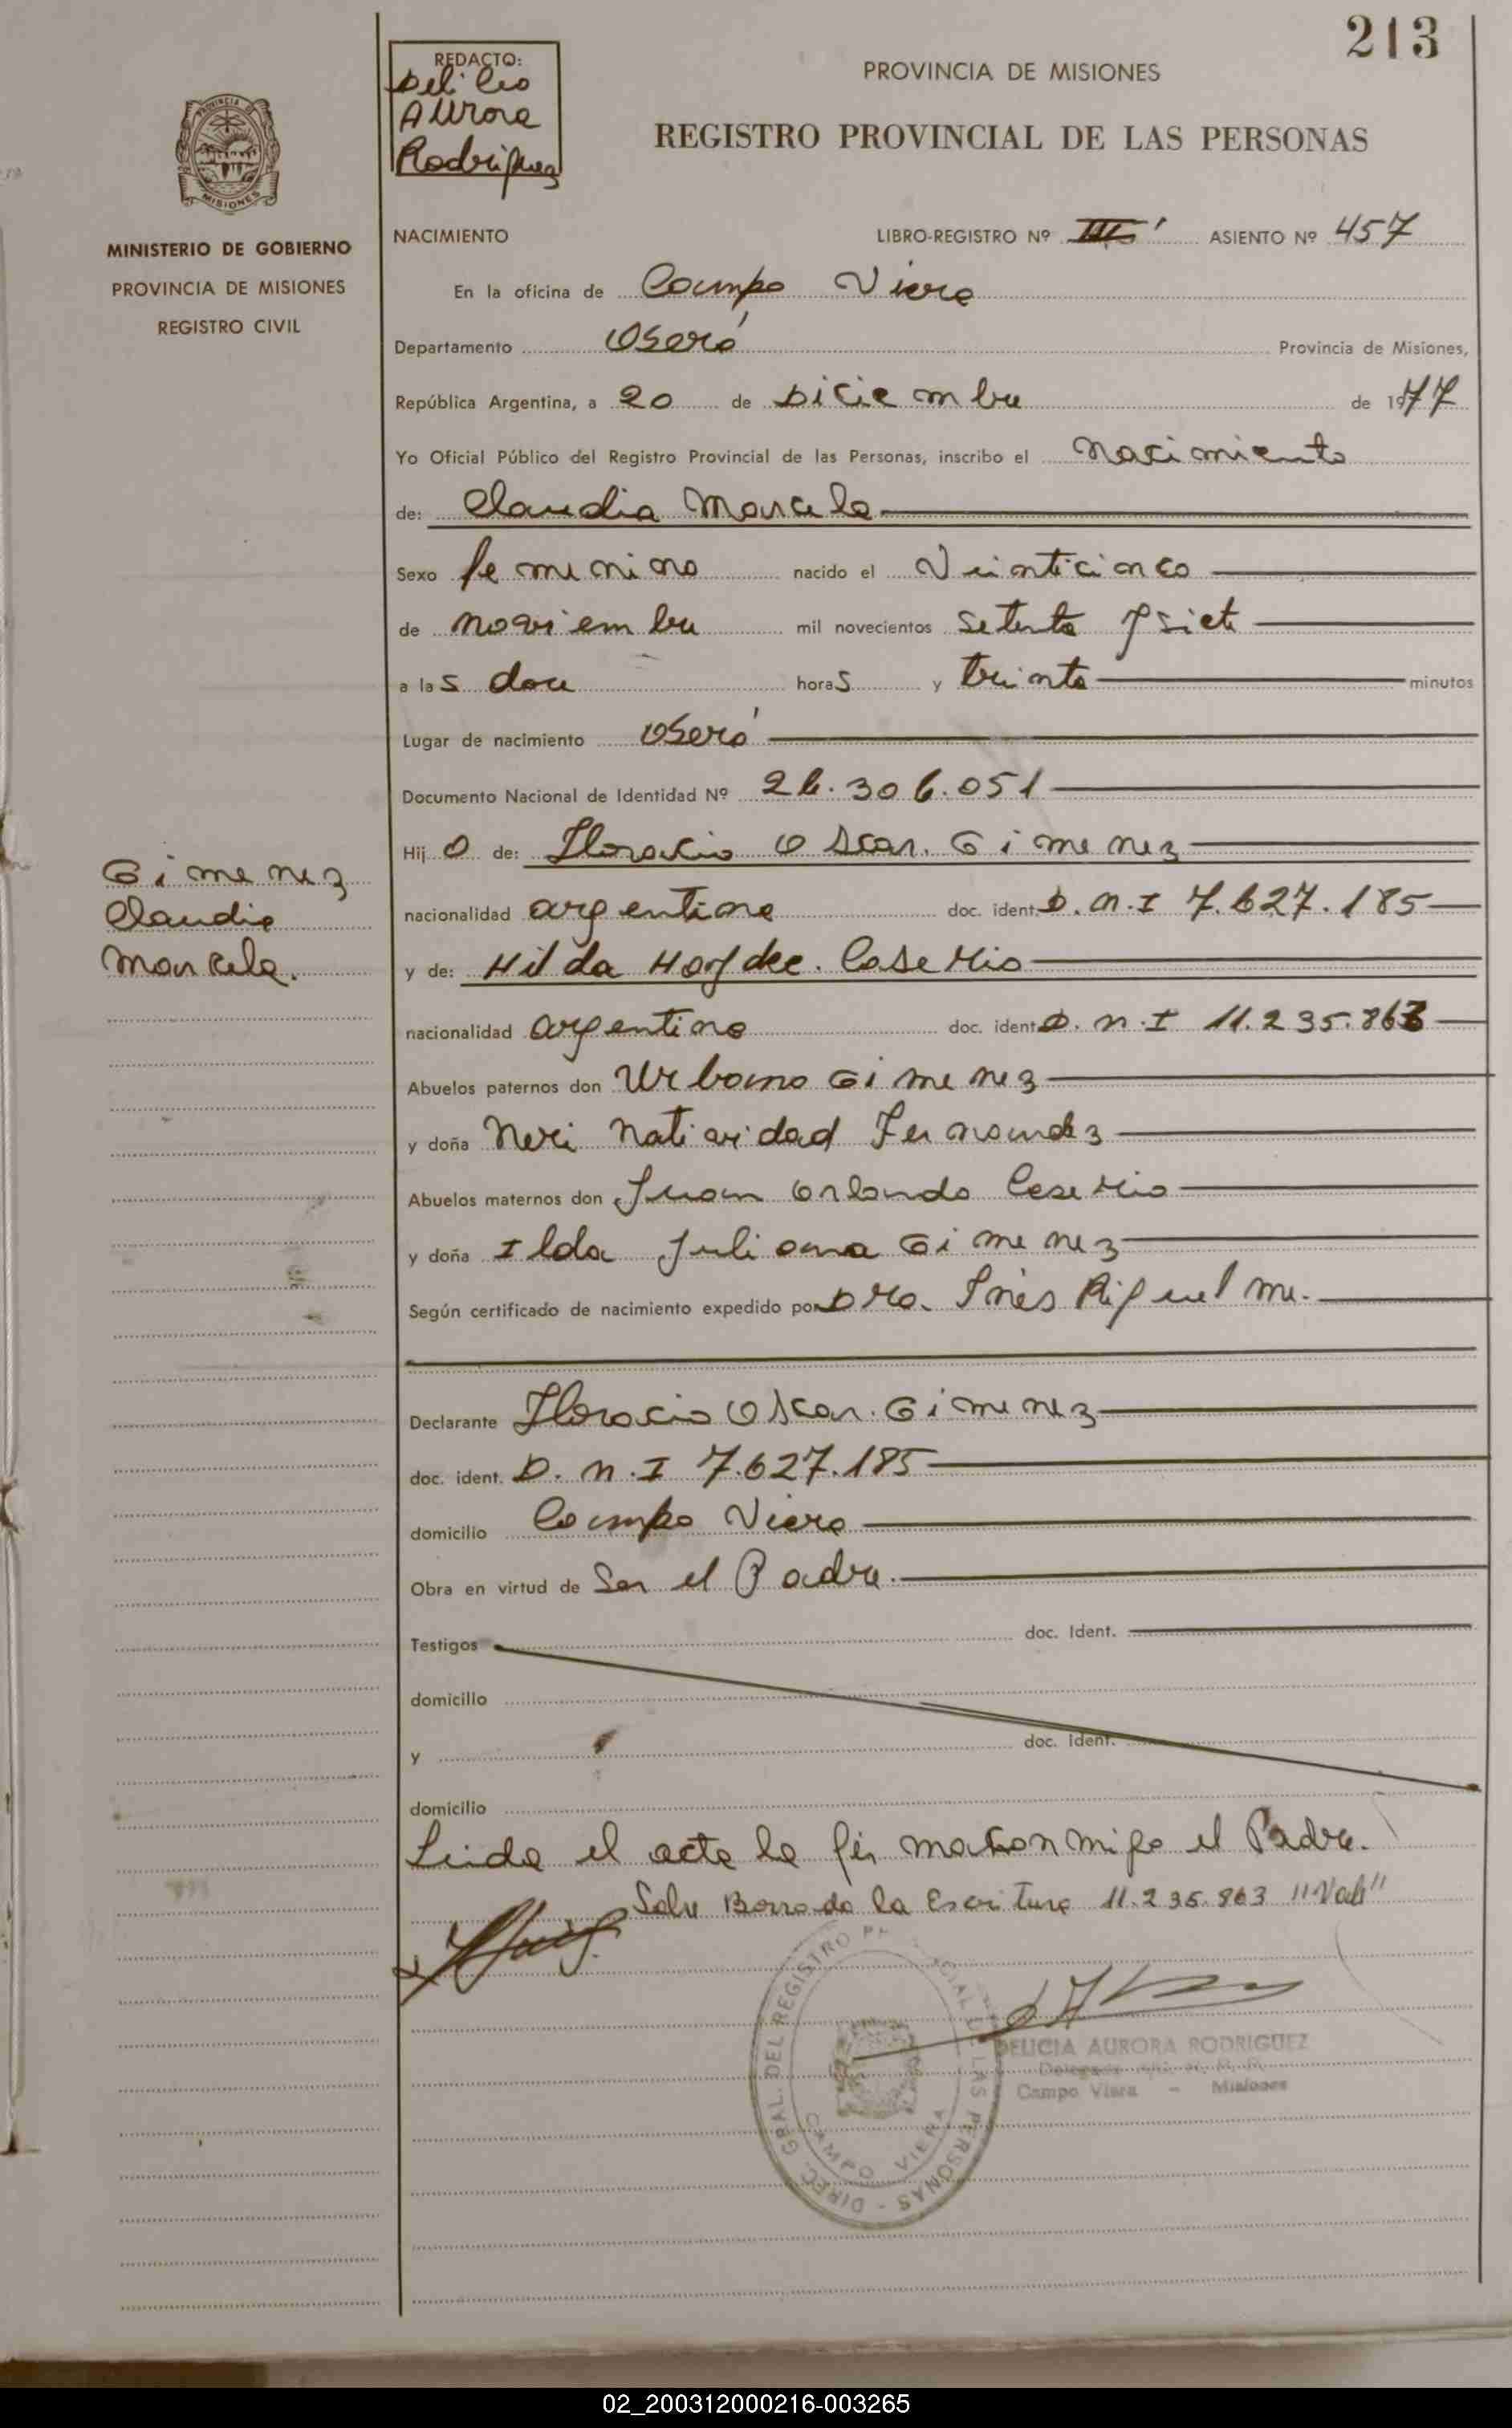 213
REDACTO:
Delicia
Aurora
Rodriguez
PROVINCIA DE MISIONES
REGISTRO PROVINCIAL DE LAS PERSONAS
PROVINCIA DE
MISIONES
MINISTERIO DE GOBIERNO
PROVINCIA DE MISIONES
REGISTRO CIVIL
NACIMIENTO LIBRO-REGISTRO Nº III ASIENTO Nº 457
En la oficina de Campo Viera
Departamento Oberá Provincia de Misiones,
República Argentina, a 20 de Diciembre de 1977
Yo Oficial Público del Registro Provincial de las Personas, inscribo el Nacimiento
de: Claudia Marcela
Sexo femenino nacido el Veinticinco
de noviembre mil novecientos setenta y siete
a las doce horas y treinta minutos
Lugar de nacimiento Oberá
Documento Nacional de Identidad Nº 26.306.051
Hij o de: Horacio Oscar. Gimenez
nacionalidad argentina doc. ident. D.N.I 7.627.185
y de: Hilda Haydee. Caserio
nacionalidad argentino doc. ident. D.N.I 11.235.863
Abuelos paternos don Urbano Gimenez
y doña Neri Natividad Fernandez
Abuelos maternos don Juan Orlando Ceserio
y doña Ilda Juliana Gimenez
Según certificado de nacimiento expedido por Dra. Inés Riquelme.
Declarante Horacio Oscar. Gimenez
doc. ident. D.N.I 7.627.185
domicilio Campo Viera
Obra en virtud de Ser el Padre.
Testigos doc. Ident.
domicilio
y doc. Ident.
domicilio
Leida el acta la firman conmigo el Padre.
Salv Borrado la Escritura 11.235.863 "Vale"
Gimenez
Claudia
Marcela.
DIREC. GRAL. DEL REGISTRO PROVINCIAL DE LAS PERSONAS
CAMPO VIERA
DELICIA AURORA RODRIGUEZ
Campo Viera - Misiones
02_200312000216-003265